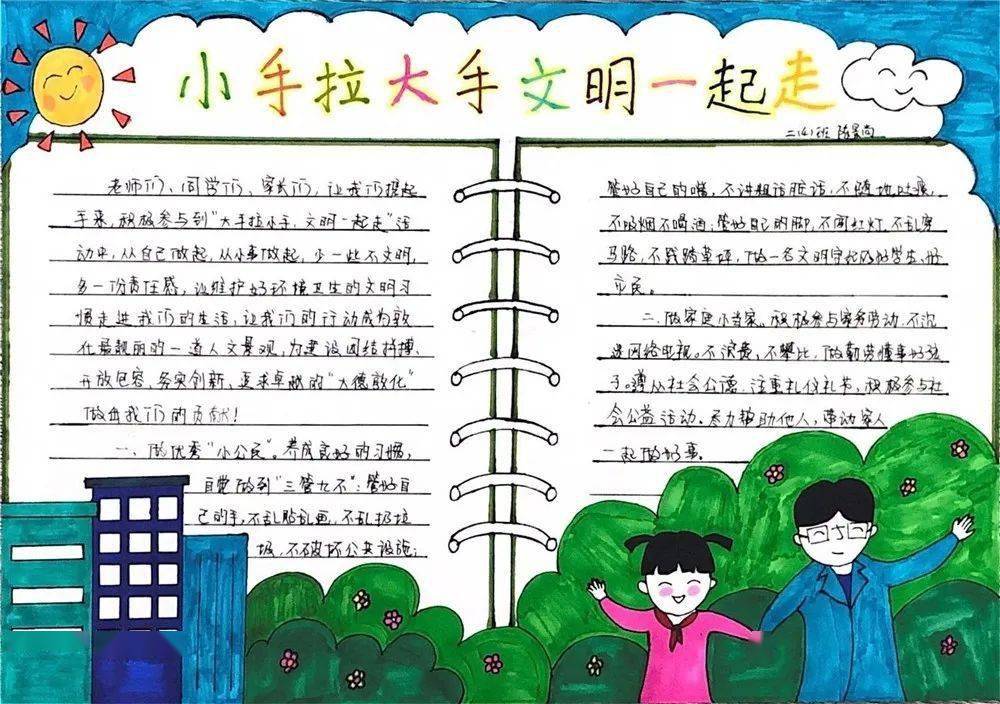 小手拉大手文明一起走
二(4)班
老师们、同学们、家长们,让我们携起
手来,积极参与到“大手拉小手,文明一起走”活
动中,从自己做起,从小事做起,少一些不文明,
多一份责任感,让维护好环境卫生的文明习
惯走进我们的生活,让我们的行动成为敦
化最靓丽的一道人文景观,为建设团结拼搏、
开放包容、务实创新、追求卓越的“大德敦化”
做出我们的贡献!
一、做优秀“小公民”。养成良好的习惯,
自觉做到“三管九不”:管好自
己的手,不乱贴乱画,不乱扔垃
圾,不破坏公共设施;
管好自己的嘴,不讲粗话脏话,不随地吐痰,
不吸烟不喝酒;管好自己的脚,不闯红灯,不乱穿
马路,不践踏草坪,做一名文明守纪的好学生、好
市民。
二、做家庭小当家。积极参与家务劳动,不沉
迷网络电视。不浪费,不攀比,做勤劳懂事好孩
子。遵从社会公德,注重礼仪礼节,积极参与社
会公益活动。尽力帮助他人,带动家人
一起做好事。